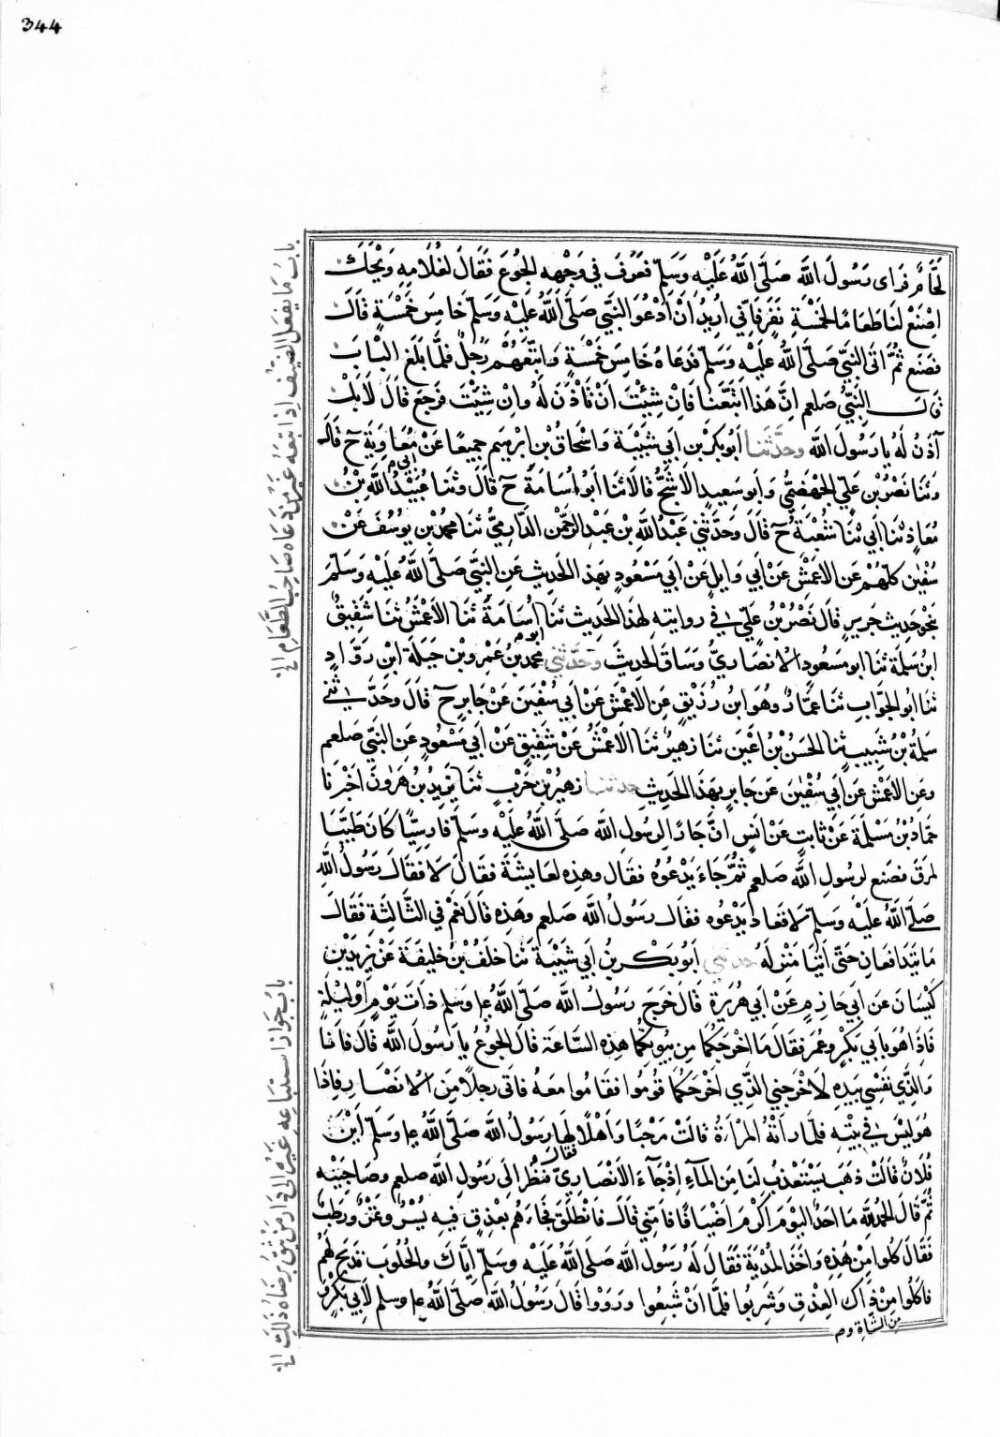 344
لحام فراى رسول الله صلى الله عليه وسلم فعرف في وجهه الجوع فقال لغلامه ويحك
اصنع لنا طعاما لخمسة نفر فاني اريد ان ادعو النبي صلى الله عليه وسلم خامس خمسة قال
فصنع ثم اتى النبي صلى الله عليه وسلم فدعاه خامس خمسة واتبعهم رجل فلما بلغ الباب
قال النبي صلعم ان هذا اتبعنا فان شئت ان تأذن له وان شئت رجع قال لا بل
آذن له يا رسول الله وحدثنا ابو بكر بن ابي شيبة واسحاق بن ابرهيم جميعا عن ابي معاوية ح قال
وثنا نصر بن علي الجهضمي وابو سعيد الاشج قالا ثنا ابو اسامة ح قال وثنا عبيد الله بن
معاذ ثنا ابي ثنا شعبة ح قال وحدثني عبد الله بن عبد الرحمن الدارمي ثنا محمد بن يوسف عن
سفين كلهم عن الاعمش عن ابي وايل عن ابي مسعود بهذ الحديث عن النبي صلى الله عليه وسلم
نحو حديث جرير قال نصر بن علي في روايته لهذ الحديث ثنا ابو اسامة ثنا الاعمش ثنا شقيق
ابن سلمة ثنا ابو مسعود الانصاري وساق الحديث وحدثني محمد بن عمرو بن جبلة ابن رواد
ثنا ابو الجواب ثنا عمار وهو ابن رزيق عن الاعمش عن ابي سفين عن جابر ح قال وحدثني
سلمة بن شبيب ثنا الحسن بن اعين ثنا زهير ثنا الاعمش عن شقيق عن ابي مسعود عن النبي صلعم
وعن الاعمش عن ابي سفين عن جابر بهذ الحديث حدثنا زهير بن حرب ثنا يزيد بن هرون اخبرنا
حماد بن سلمة عن ثابت عن انس ان جارا لرسول الله صلى الله عليه وسلم فارسيا كان طيب
المرق فصنع لرسول الله صلعم ثم جاء يدعوه فقال وهذه لعايشة فقال لا فقال رسول الله
صلى الله عليه وسلم لا فعاد يدعوه فقال رسول الله صلعم وهذه قال نعم في الثالثة فقال
ما يتدافعان حتى اتيا منزله حدثني ابو بكر بن ابي شيبة ثنا خلف بن خليفة عن يزيد بن
كيسان عن ابي حازم عن ابي هريرة قال خرج رسول الله صلى الله علي وسلم ذات يوم او ليلة
فاذا هو بابي بكر وعمر فقال ما اخرجكما من بيوتكما هذه الساعة قال الجوع يا رسول الله قال فانا
والذي نفسي بيده لاخرجني الذي اخرجكما قوموا فقاموا معه فاتى رجلا من الانصار فاذا
هو ليس في بيته فلما راته المراة قالت مرحبا واهلا فقال لها رسول الله صلى الله علي وسلم اين
فلان قالت ذهب يستعذب لنا من الماء اذ جاء الانصاري فنظر الى رسول الله صلعم وصاحبيه
ثم قال الحمد لله ما احد اليوم اكرم اضيافا مني قال فانطلق فجاءهم بعذق فيه بسر وتمر ورطب
فقال كلوا من هذه واخذ المدية فقال له رسول الله صلى الله عليه وسلم اياك والحلوب فذبح لهم
فاكلوا من الشاة ومن ذاك العذق وشربوا فلما ان شبعوا ورووا قال رسول الله صلى الله علي وسلم لابي بكر و
باب ما يفعل الضيف اذا تبعه غير من دعاه صاحب الطعام الخ
باب جواز استتباعه غيره الى دار من يثق برضاه ذلك الخ